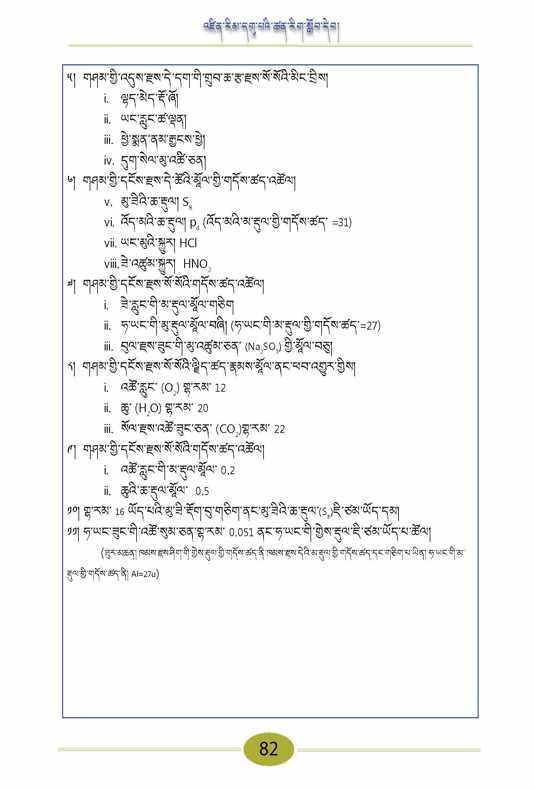 འཛིན་རིམ་དགུ་པའི་ཚན་རིག་སློབ་དེབ།
༥། གཤམ་གྱི་འདུས་རྫས་དེ་དག་གི་གྲུབ་ཆ་རྩ་རྫས་སོ་སོའི་མིང་བྲིས།
i. ལྷད་མེད་རྡོ་ཞོ།
ii. ཡང་རླུང་ཚ་ལྡན།
iii. ཕྱེ་སྨན་ནམ་རྒྱངས་ཕྱེ།
iv. དུག་སེལ་མུ་འཚི་ཅན།
༦། གཤམ་གྱི་དངོས་རྫས་དེ་ཚོའི་མོལ་གྱི་གདོས་ཚད་འཚོལ།
v. མུ་ཟིའི་ཆ་རྡུལ། S₈
vi. འོད་མའི་ཆ་རྡུལ། p₄ (འོད་མའི་མ་རྡུལ་གྱི་གདོས་ཚད་ =31)
vii. ཡང་མུའི་སྐྱུར། HCl
viii. ཟེ་འཚུམ་སྐྱུར། HNO₃
༧། གཤམ་གྱི་དངོས་རྫས་སོ་སོའི་གདོས་ཚད་འཚོལ།
i. ཟེ་རླུང་གི་མ་རྡུལ་མོལ་གཅིག
ii. ཧ་ཡང་གི་མུ་རྡུལ་མོལ་བཞི། (ཧ་ཡང་གི་མ་རྡུལ་གྱི་གདོས་ཚད་=27)
iii. བུལ་རྫས་ཟུང་གི་མུ་འཚུམ་ཅན་ (Na₂SO₃) གྱི་མོལ་བཅུ།
༨། གཤམ་གྱི་དངོས་རྫས་སོ་སོའི་ལྗིད་ཚད་རྣམས་མོལ་ནང་ཕབ་འགྱུར་གྱིས།
i. འཚོ་རླུང་ (O₂) གྷ་རམ་ 12
ii. ཆུ་ (H₂O) གྷ་རམ་ 20
iii. སོལ་རྫས་འཚོ་ཟུང་ཅན་ (CO₂)གྷ་རམ་ 22
༩། གཤམ་གྱི་དངོས་རྫས་སོ་སོའི་གདོས་ཚད་འཚོལ།
i. འཚོ་རླུང་གི་མ་རྡུལ་མོལ་ 0.2
ii. ཆུའི་ཆ་རྡུལ་མོལ་ 0.5
༡༠། གྷ་རམ་ 16 ཡོད་པའི་མུ་ཟི་རྡོག་བུ་གཅིག་ནང་མུ་ཟིའི་ཆ་རྡུལ་(S₈)ཇི་ཙམ་ཡོད་དམ།
༡༡། ཧ་ཡང་ཟུང་གི་འཚོ་སུམ་ཅན་གྷ་རམ་ 0.051 ནང་ཧ་ཡང་གི་གྱེས་རྡུལ་ཇི་ཙམ་ཡོད་པ་ཚོལ།
(ཟུར་མཆན། ཁམས་རྫས་ཤིག་གི་གྱེས་རྡུལ་གྱི་གདོས་ཚད་ནི་ཁམས་རྫས་དེའི་མ་རྡུལ་གྱི་གདོས་ཚད་དང་གཅིག་པ་ཡིན། ཧ་ཡང་གི་མ་
རྡུལ་གྱི་གདོས་ཚད་ནི། Al=27u)
82